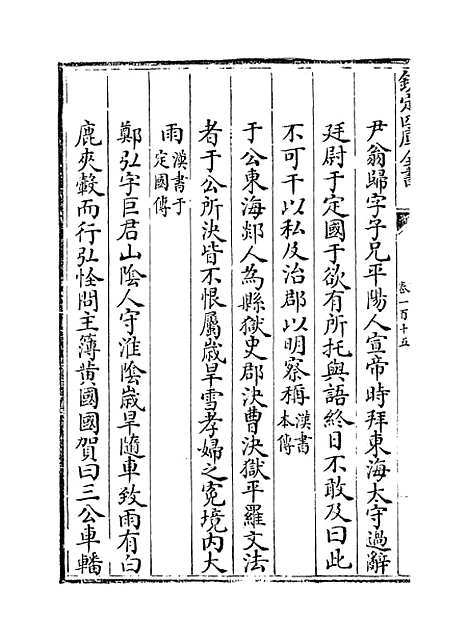 欽定四庫全書
卷一百十五
尹翁歸字子兄平陽人宣帝時拜東海太守過辭
廷尉于定國于欲有所托與語終日不敢及曰此
不可干以私及治郡以明察稱漢書本傳
于公東海郯人為縣獄史郡決曹決獄平羅文法
者于公所決皆不恨屬歲旱雪孝婦之寃境内大
雨漢書于定國傳
鄭弘字巨君山陰人守淮陰歲旱隨車致雨有白
鹿夾轂而行弘怪問主簿黄國國賀曰三公車轓